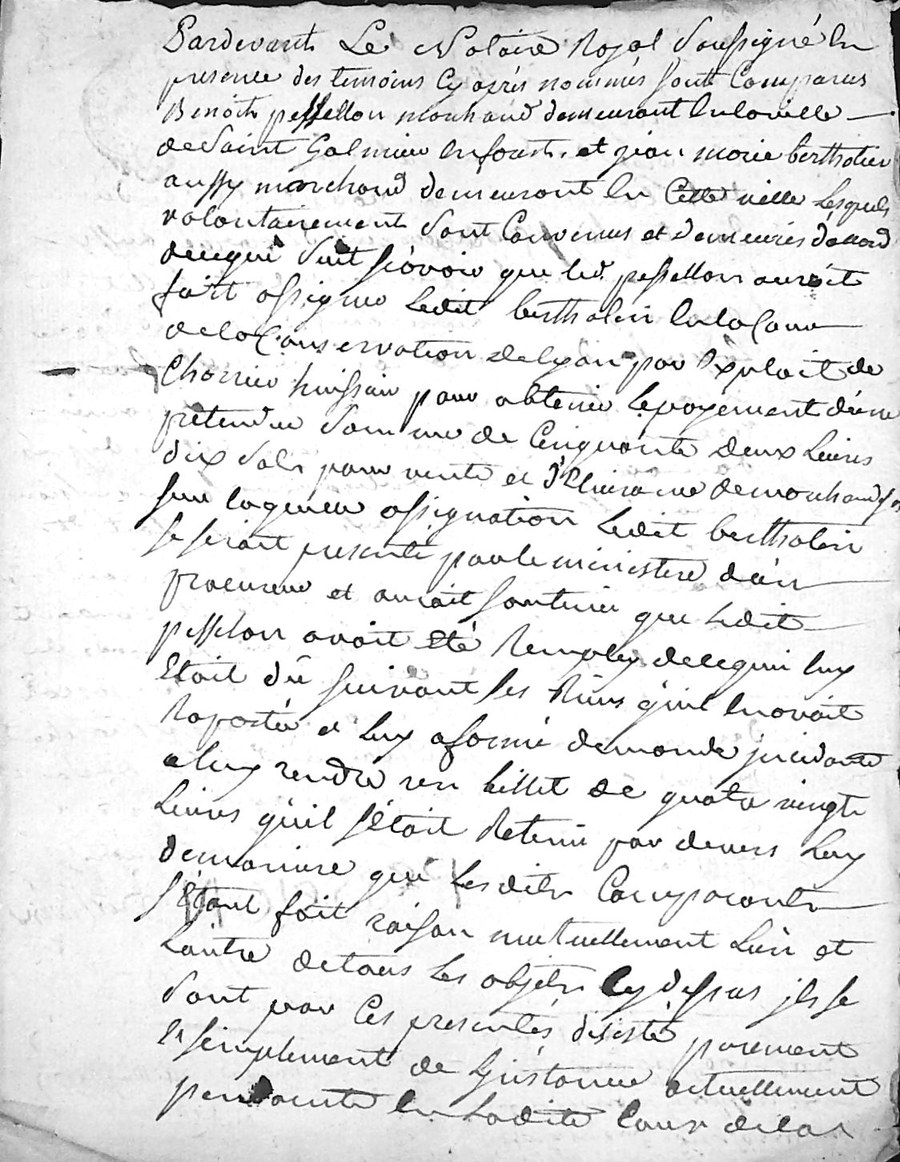 Pardevant Le Notaire Royal Soussigné En
presence des temoins Cy aprés nommés sont Comparus
Benoit pesselon marchand demeurant En la ville
de Saint Galmier En forest, et jean marie berthollin
aussy marchand demeurant En Cette ville Lesquels
volontairement Sont Convenus et demeurés daccord
de ce qui Suit sçavoir que led. pesselon auroit
fait assigner Ledit berthollin En la Cour
de la Conservation de Lyon par Exploit de
huissier pour obtenir Le payement d'une
pretendue Somme de Cinquante deux Livres
dix Sols pour vente et delivrance de marchandises
sur laquelle assignation Ledit berthollin
se serait presenté par le ministere d'un
procureur et aurait soutenu que Ledit
pesselon avoit été Remply de ce qui luy
Etoit dû suivant les qu'il En avoit
Raporté et luy a formé demande jncidante
a luy rendre un billet de quatre vingt
Livres qu'il s'étoit Retenu par devers Luy
de maniere que Lesdits Comparants
s'Etant fait raison mutuellement L'un et
L'autre de tous Les objets Cy dessus jls se
Sont par Ces presentes desisté purement
Et simplement de L'jnstance actuellement
pendante En Ladite Cour de la